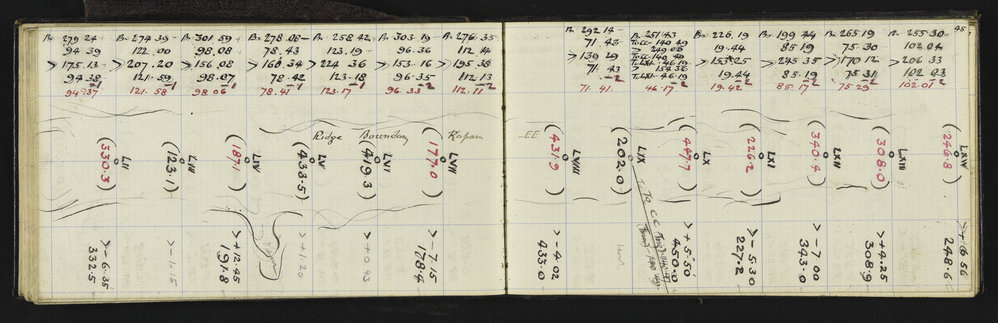 B. 279 24
94 39
> 175.13
94.38
94.37
B. 274 39
122.00
> 207.20
121.59
121.58
B. 301 59
98.08
> 156.08
98.07
98.06
B. 278.08
78.43
> 160.34
78.42
78.41
B. 258.42
123.19
> 224 36
123.18
123.17
B. 303.19
96.36
> 153.16
96.35
96.33
B. 276.35
112 14
> 195 38
112.13
112.11
Ridge Boundary Kapara
LII
(330.3)
LIII
(123.1)
LIV
(187.1)
LV
(438.5)
LVI
(419.3)
LVII
(177.0)
> - 6.35
332.5
> - 1.15
> + 12.45
191.8
> + 1.20
> + 0.43
> - 7.15
178.4
45
B. 292 14
71 43
> 139 29
71 43
-2
71.41
B. 251.43
46.17
B. 226.19
19.44
> 153.25
19.44
-2
19.42
B. 199 44
85 19
> 245 35
85.19
-2
85.17
B. 265 19
75.30
> 170 12
75 31
-2
75 29
B. 255.30
102 04
> 206 33
102 03
-2
102.01
EE
LVIII
(431.9)
LIX
(202.0)
LX
(447.7)
LXI
(226.2)
LXII
(340.4)
LXIII
(308.0)
LXIV
(246.8)
> - 4.02
433.0
Level
> + 5.50
450.0
> - 5.30
227.2
> - 7 00
343.0
> + 4.25
308.9
248.6